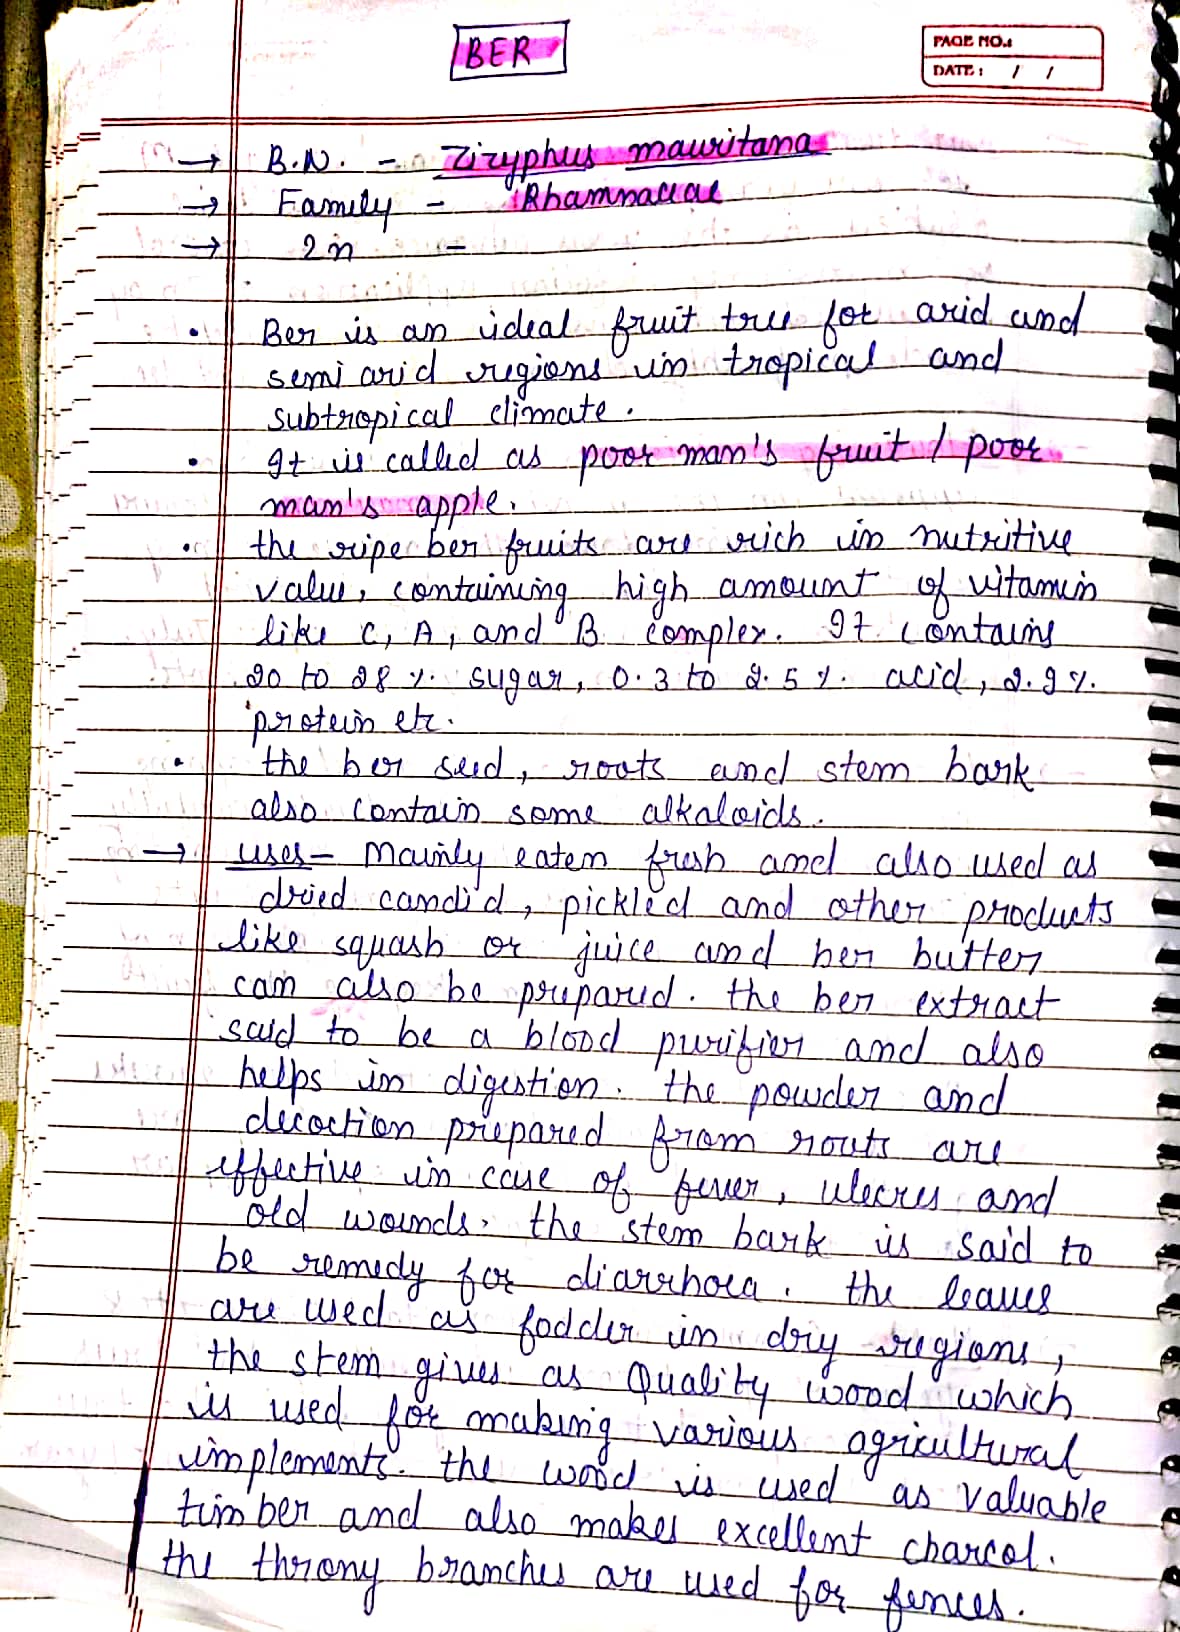 BER
PAGE NO.:
DATE: / /
→ B.N. - Ziryphus mauritana
→ Family - Rhamnaceae
→ 2n -
• Ber is an ideal fruit tree for arid and
semi arid regions in tropical and
subtropical climate.
• It is called as poor man's fruit / poor
man's apple.
• the ripe ber fruits are rich in nutritive
value, containing high amount of vitamin
like C, A, and B complex. It contains
20 to 28 %. sugar, 0.3 to 2.5 %. acid, 2.9 %.
protein etc.
• the ber seed, roots and stem bark
also contain some alkaloids.
→ uses - Mainly eaten fresh and also used as
dried candid, pickled and other products
like squash or juice and ber butter
can also be prepared. the ber extract
said to be a blood purifier and also
helps in digestion. the powder and
decoction prepared from routs are
effective in case of fever, ulecres and
old wounds. the stem bark is said to
be remedy for diarrhoea. the leaves
are used as fodder in dry regions,
the stem gives as Quality wood which
is used for making various agricultural
implements. the wood is used as valuable
timber and also makes excellent charcol.
the throny branches are used for fences.